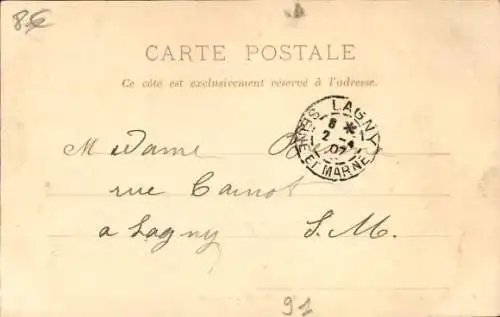 8€
CARTE POSTALE
Ce côté est exclusivement réservé à l'adresse.
LAGNY
8 *
2 -4
02
SEINE ET MARNE
Madame
rue Carnot
a Lagny S. M.
91